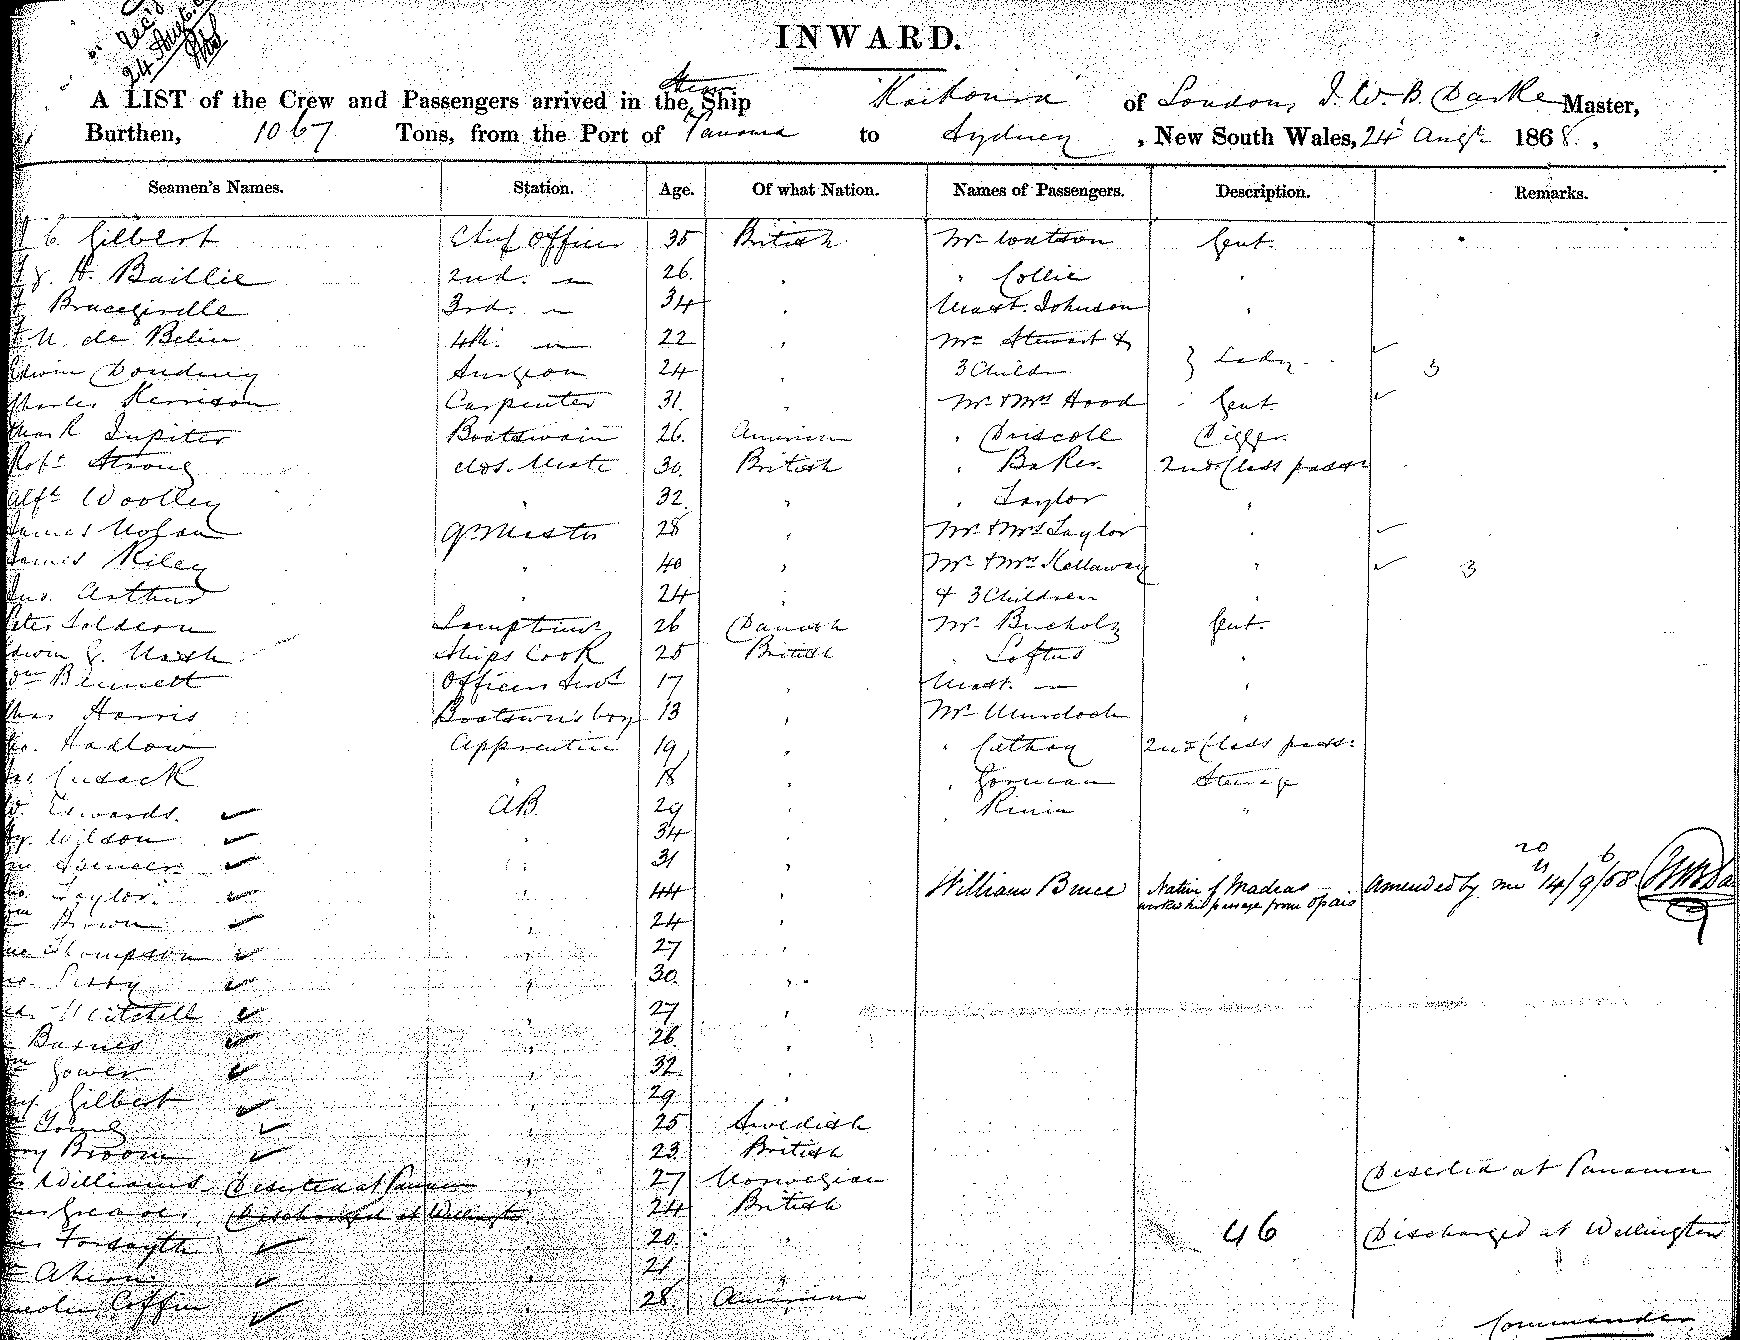 24 Aug.
INWARD.
A LIST of the Crew and Passengers arrived in the Steam Ship Kaikoura of London, J. W. B. Darke Master,
Burthen, 1067 Tons, from the Port of Panama to Sydney, New South Wales, 24 Augt 1868.
Seamen's Names. Station. Age. Of what Nation. Names of Passengers. Description. Remarks.
C Gilbert Chief Officer 35 British Mr Watson Gent.
H. Baillie 2nd. " 26. " " Collie "
Bracegirdle 3rd. " 34 " Mast. Johnson "
de Belin 4th. " 22 " Mrs Stewart &
Edwin Doudney Surgeon 24 " 3 Childn } Lady 3
Charles Kerrison Carpenter 31. " Mr & Mrs Hood Gent.
Mark Jupiter Boatswain 26. American " Driscoll Digger
Robt Strong do s. Mate 30. British " Baker. 2nd Class passr
Alfd Woolley " 32. " " Taylor "
James Nolan Qr Master 28 " Mr & Mrs Taylor "
James Riley " 40 " Mr & Mrs Kellaway " 3
Jno. Arthur " 24 " & 3 Children "
Peter Soldern Lamptrimr 26 Danish Mr. Bucholz Gent.
Edwin J. Nash Ships Cook 25 British " Loftus "
Wm Bennett Officers Servt 17 " Mast. " "
Harris Boatswn's boy 13 " Mr Murdoch "
Hadlow Apprentice 19 " " Cathay 2nd Class passr
Cusack " 18 " " Gorman Steerage
Edwards. AB. 29 " " Kinin "
Wilson " 34 "
Spencer " 31 "
Taylor " 44 " William Bruce Native of Madras worked his passage from Opais Amended by me 14/9/68
Brown " 24 "
Thompson " 27 "
Perry " 30. "
Mitchell " 27 "
Barnes " 26. "
Gower " 32. "
Gilbert " 29 "
Young " 25 Swedish
Broom " 23. British
Williams Deserted at Panama " 27 Norwegian Deserted at Panama
Greaves Discharged at Wellington " 24 British
Forsyth " 20 " 46 Discharged at Wellington
Ahern " 21 "
Coffin " 28. American
Commander